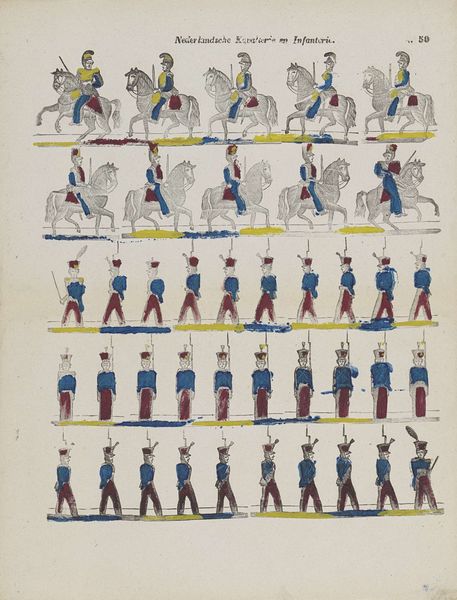 Nederlandsche Kavallerie en Infanterie.
59